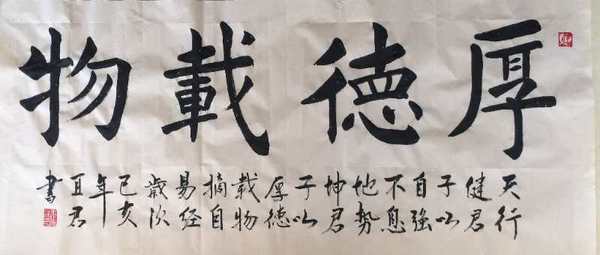 厚德載物
天行
健君
子以
自強
不息
地势
坤君
子以
厚德
载物
摘自
易经
歲次
己亥
年
君
書